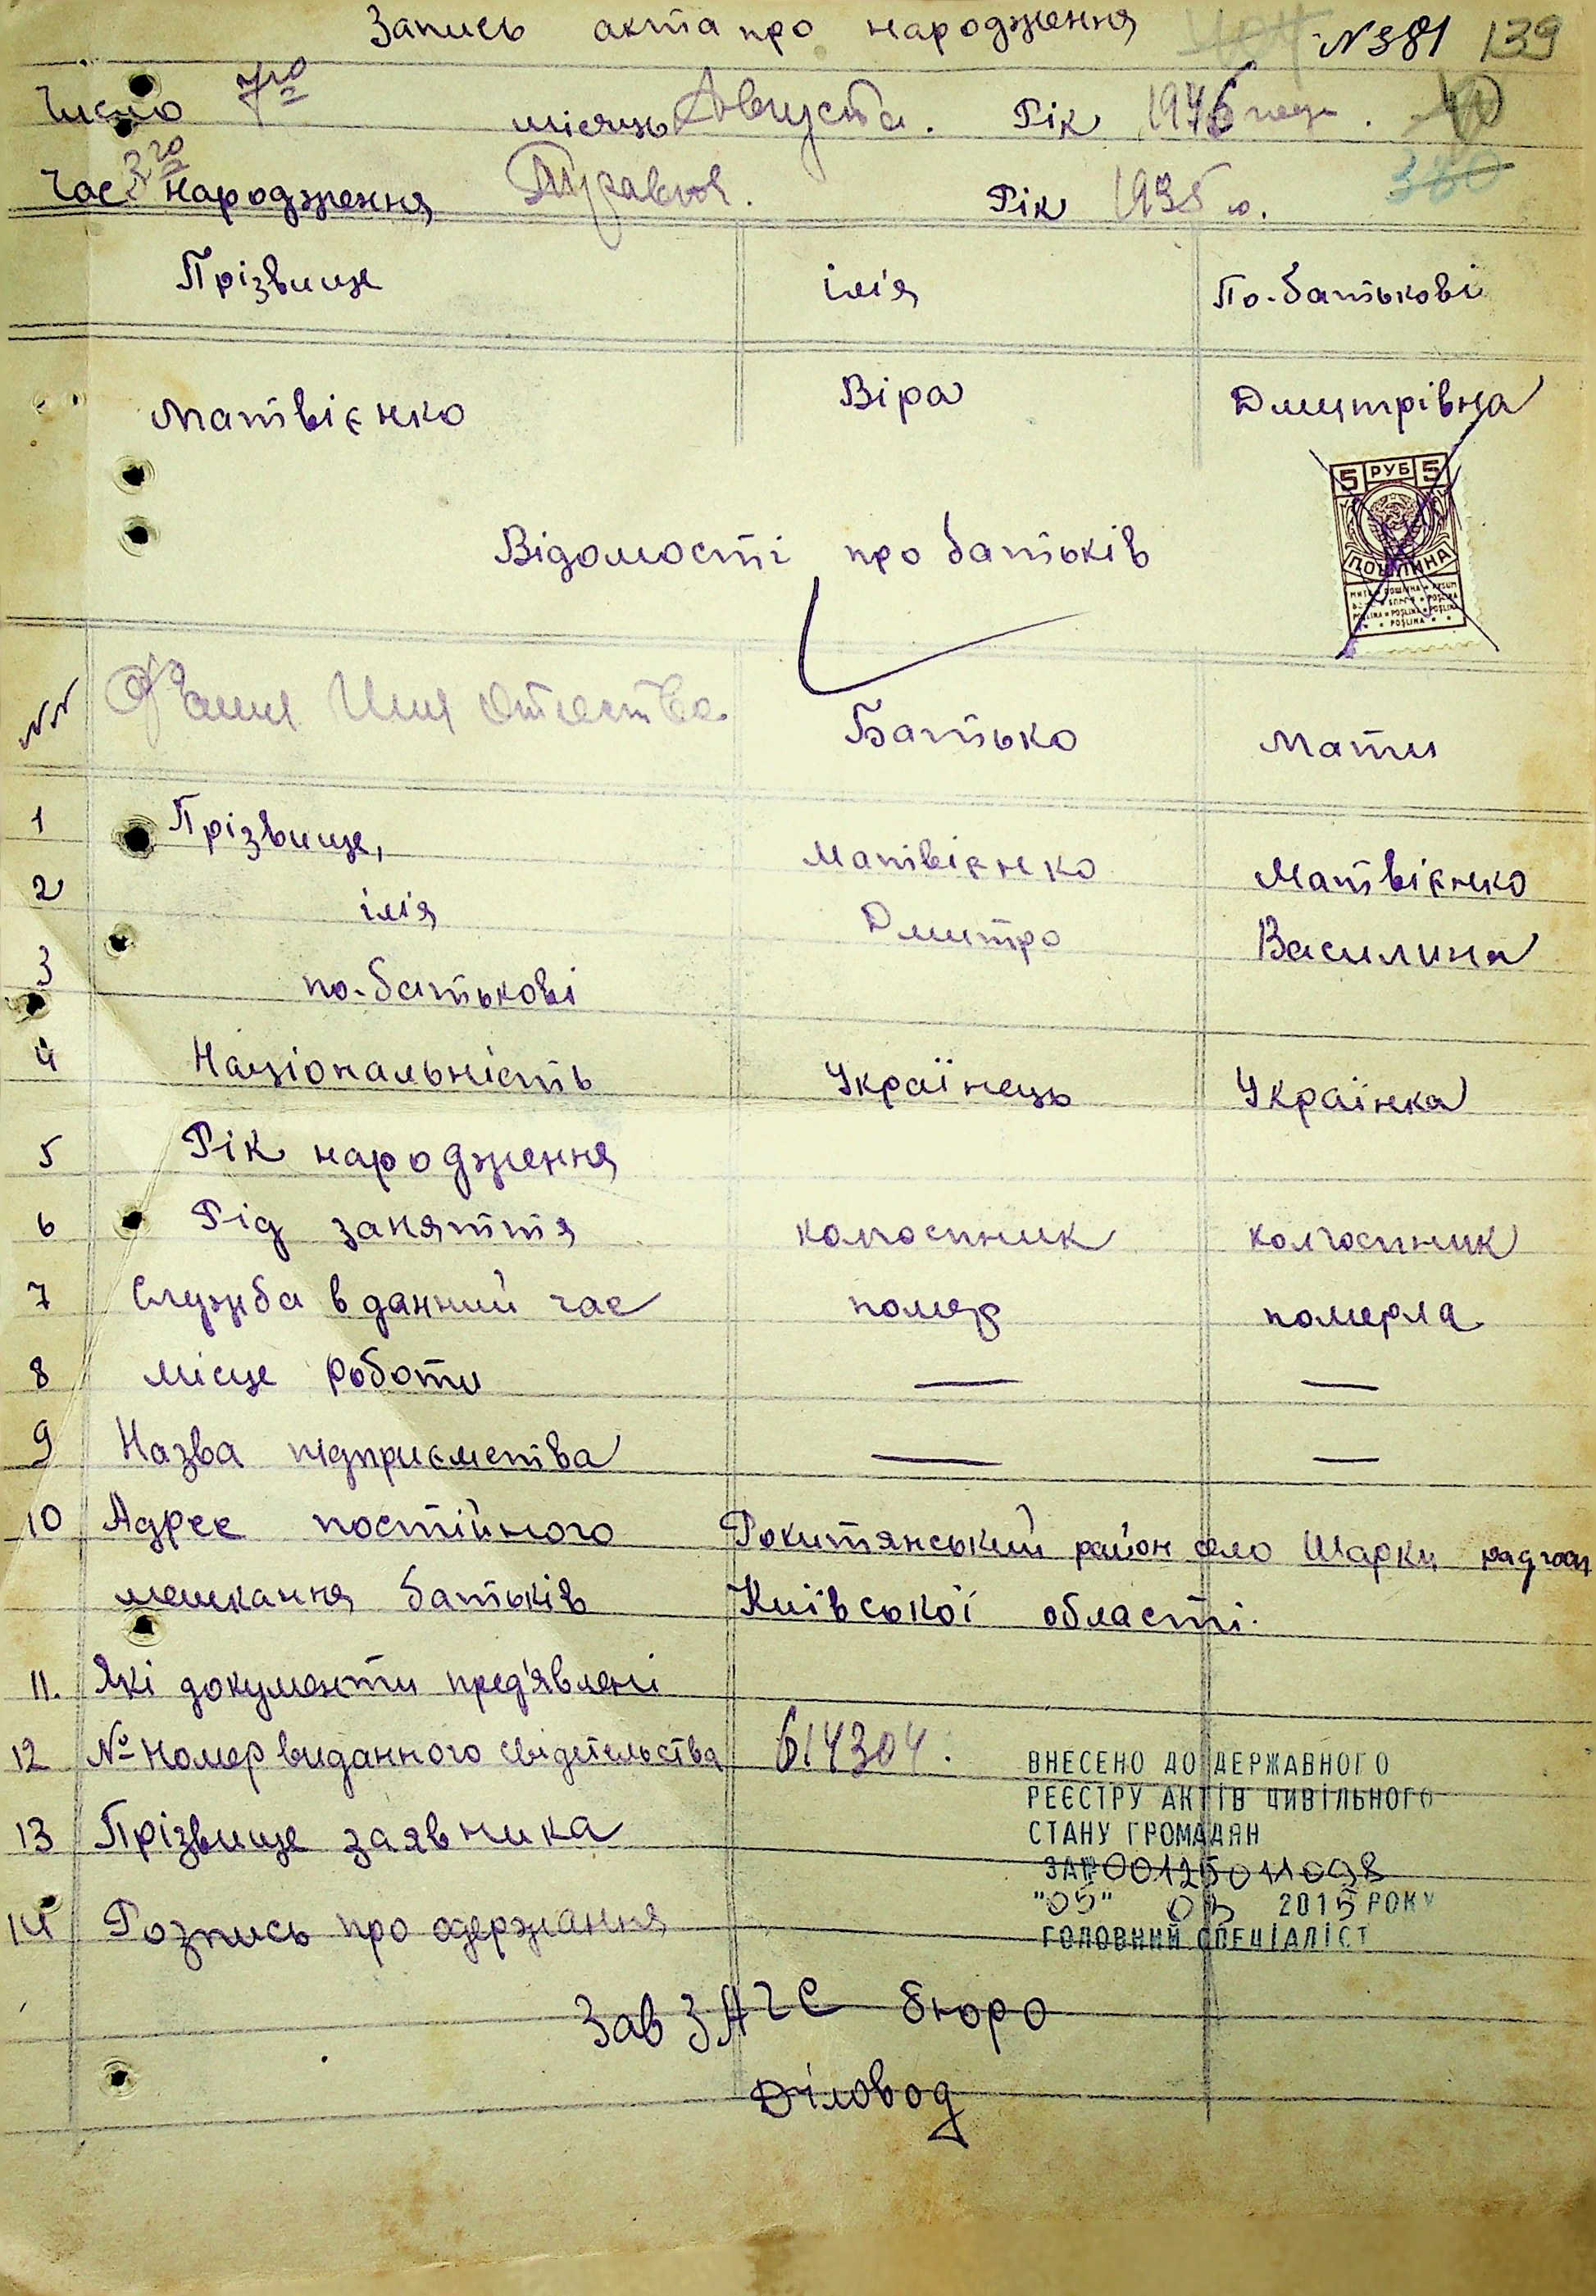 Запись акта про народження №381 139
Число 7го місяць Августа. Рік 1946 года.
380
Час 3го народження Травня. Рік 1935 р.
Прізвище імія По-батькові
Матвієнко Віра Дмитрівна
5 РУБ 5
ПОШЛИНА
Відомості про батьків
№№ Фамил Имя Отчества Батько Мати
1 Прізвище, Матвієнко Матвієнко
2 імія Дмитро Василина
3 по-батькові
4 Національність Українець Українка
5 Рік народження
6 Рід заняття колгоспник колгоспник
7 Служба в данний час помер померла
8 Місце роботи — —
9 Назва підприємства — —
10 Адрес постійного Рокитянський район село Шарки радгосп
мешкання батьків Київської області.
11. Які документи пред'явлені
12 № номер виданного свідетельства 614304.
ВНЕСЕНО ДО ДЕРЖАВНОГО
РЕЄСТРУ АКТІВ ЦИВІЛЬНОГО
13 Прізвище заявника СТАНУ ГРОМАДЯН
ЗА№00125011098
"05" 03 2015 РОКУ
14 Розпись про одержання ГОЛОВНИЙ СПЕЦІАЛІСТ
Зав ЗАГС бюро
Діловод